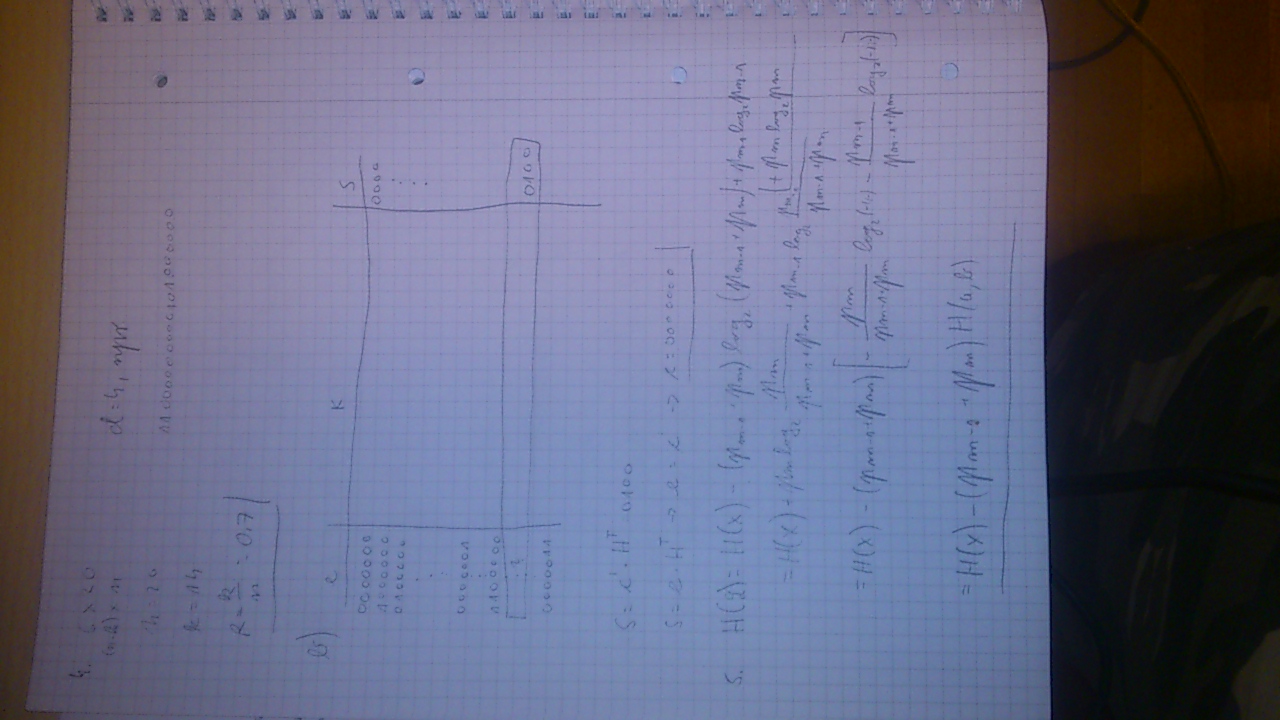 4. 6 x 20
(n-k) x n
n = 20
k = 14
R = k/n = 0,7
d = 4, npr
b)
e K S
0000000 0000
1000000
0100000
0000001
1100000
? 0100
0000011
S = e' · H^T = 0100
S = e · H^T → e = e' →
5. H(2) = H(x) - (p_{m-1} + p_m) log_2 (p_{m-1} + p_m) + p_{m-1} log_2 p_{m-1}
+ p_m log_2 p_m
= H(x) + p_m log_2 p_m/(p_{m-1} + p_m) + p_{m-1} log_2 p_{m-1}/(p_{m-1} + p_m)
= H(x) - (p_{m-1} + p_m) [ - p_m/(p_{m-1} + p_m) log_2(-||-) - p_{m-1}/(p_{m-1} + p_m) log_2(-||-) ]
= H(x) - (p_{m-1} + p_m) H(a, b)